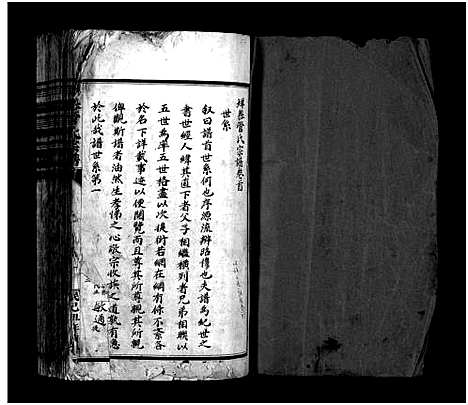 管氏宗譜卷首
世系
叙曰譜首世系何也序源流辯昭穆也夫譜為紀世之
書世經人緯其直下者父子相繼橫列者兄弟相聯以
五世為率五世格盡以次後衍若網在綱有條不紊各
於名下詳載事迹以便閱覽而且尊其所尊親其所親
俾觀斯譜者油然生孝悌之心敬宗收族之道孰有急
於此哉譜世系第一
敏適